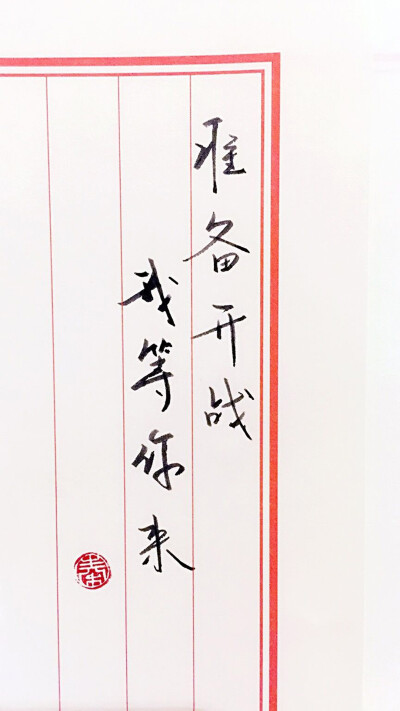 准备开战
我等你来